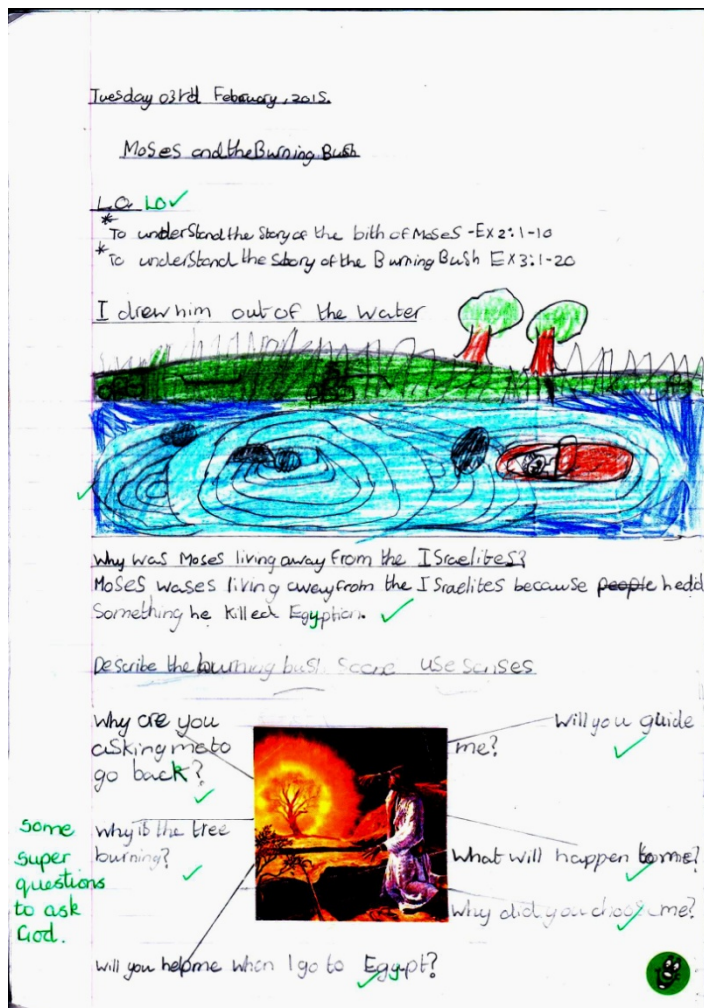 Tuesday 03rd February, 2015.
Moses and the Burning Bush
L.O. LO ✓
* To understand the story of the bith of Moses - Ex 2:1-10
* To understand the story of the Burning Bush Ex 3:1-20
I drew him out of the water
Why was Moses living away from the Israelites?
Moses wases living away from the Israelites because people he did
Something he killed Egyptian.
Describe the burning bush scene use senses
Why are you
asking me to
go back?
Will you guide
me?
Why is the tree
burning?
What will happen to me?
Why did you choose me?
Will you help me when I go to Egypt?
Some
super
questions
to ask
God.